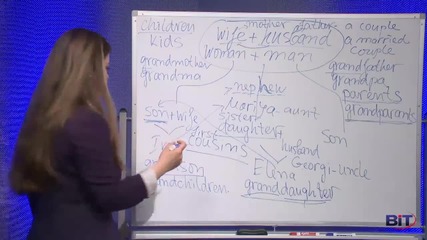 children
kids
mother father
wife + husband
woman + man
a couple
a married
couple
grandmother
grandma
grandfather
grandpa
parents
grandparents
nephew
Mariya-aunt
sister
daughter+
son+wife
first
cousins
Son
husband
Georgi-uncle
Elena
granddaughter
BiT